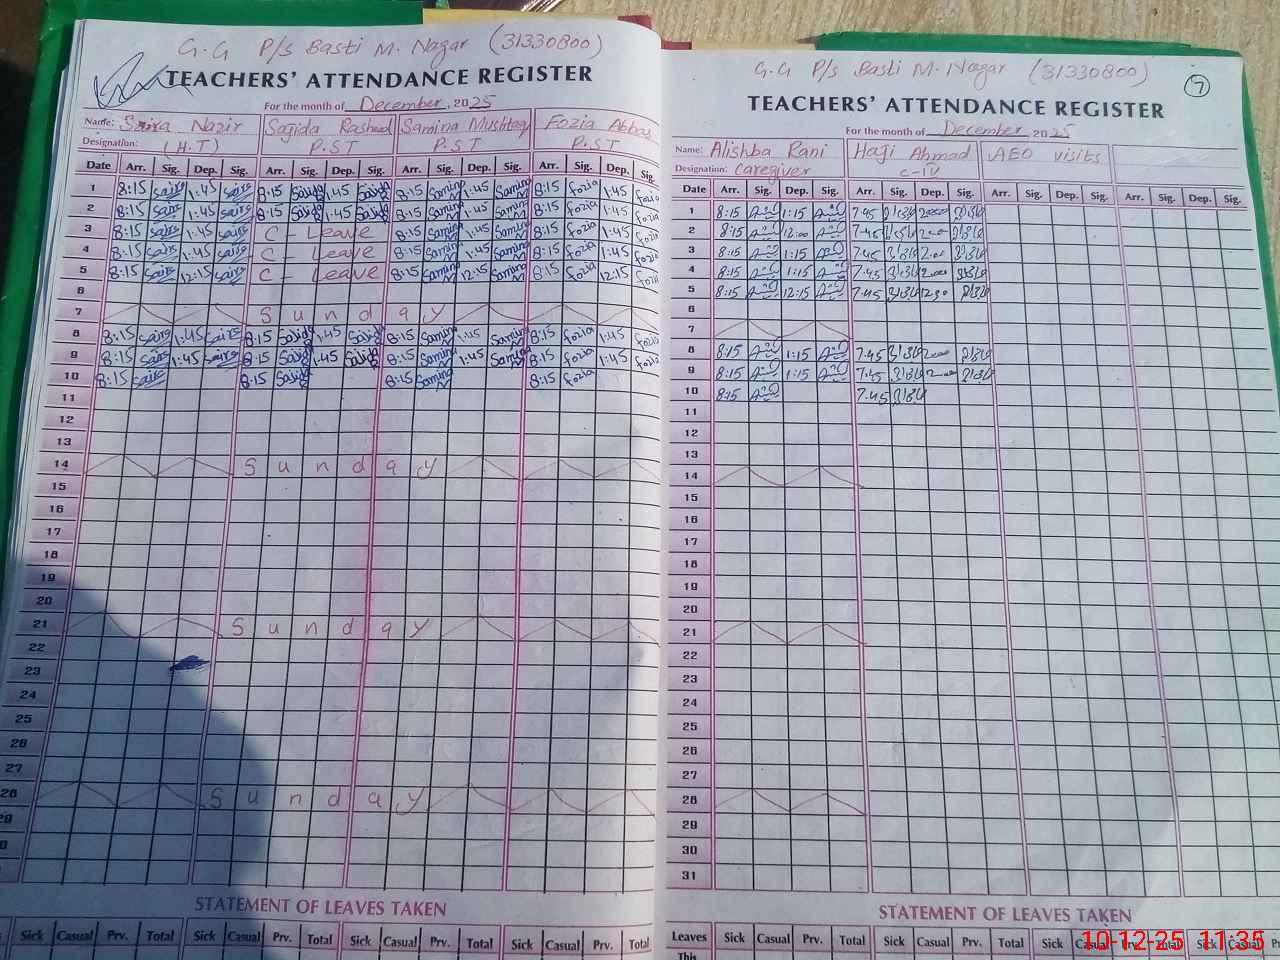 G.G P/s Basti M. Nagar (31330800)
TEACHERS' ATTENDANCE REGISTER
For the month of December 2025
Name: Saira Nazir Sajida Rasheed Samina Mushtaq Fozia Abbas
Designation: (H.T) P.S.T P.S.T P.S.T
Date Arr. Sig. Dep. Sig. Arr. Sig. Dep. Sig. Arr. Sig. Dep. Sig. Arr. Sig. Dep. Sig.
1 8:15 saira 1:45 saira 8:15 Sajida 1:45 Sajida 8:15 Samina 1:45 Samina 8:15 fozia 1:45 fozia
2 8:15 saira 1:45 saira 8:15 Sajida 1:45 Sajida 8:15 Samina 1:45 Samina 8:15 fozia 1:45 fozia
3 8:15 saira 1:45 saira C - Leave 8:15 Samina 1:45 Samina 8:15 fozia 1:45 fozia
4 8:15 saira 1:45 saira C - Leave 8:15 Samina 1:45 Samina 8:15 fozia 1:45 fozia
5 8:15 saira 12:15 saira C - Leave 8:15 Samina 12:15 Samina 8:15 fozia 12:15 fozia
6
7 Sunday
8 8:15 saira 1:45 saira 8:15 Sajida 1:45 Sajida 8:15 Samina 1:15 Samina 8:15 fozia 1:45 fozia
9 8:15 saira 1:45 saira 8:15 Sajida 1:45 Sajida 8:15 Samina 1:45 Samina 8:15 fozia 1:45 fozia
10 8:15 saira 8:15 Sajida 8:15 Samina 8:15 fozia
11
12
13
14 Sunday
15
16
17
18
19
20
21 Sunday
22
23
24
25
26
27
28 Sunday
29
STATEMENT OF LEAVES TAKEN
Sick Casual Prv. Total Sick Casual Prv. Total Sick Casual Prv. Total Sick Casual Prv. Total
G.G P/s Basti M. Nagar (31330800)
7
TEACHERS' ATTENDANCE REGISTER
For the month of December 2025
Name: Alishba Rani Haji Ahmad AEO visits
Designation: Caregiver C-IV
Date Arr. Sig. Dep. Sig. Arr. Sig. Dep. Sig. Arr. Sig. Dep. Sig. Arr. Sig. Dep. Sig.
1 8:15 1:15 7:45 2:00
2 8:15 12:00 7:45 2:00
3 8:15 1:15 7:45 2:00
4 8:15 1:15 7:45 2:00
5 8:15 12:15 7:45 12:30
6
7
8 8:15 1:15 7:45 2:00
9 8:15 1:15 7:45 2:00
10 8:15 7:45
11
12
13
14
15
16
17
18
19
20
21
22
23
24
25
26
27
28
29
30
31
STATEMENT OF LEAVES TAKEN
Leaves Sick Casual Prv. Total Sick Casual Prv. Total Sick Casual Prv. Total Sick Casual
This
10-12-25 11:35